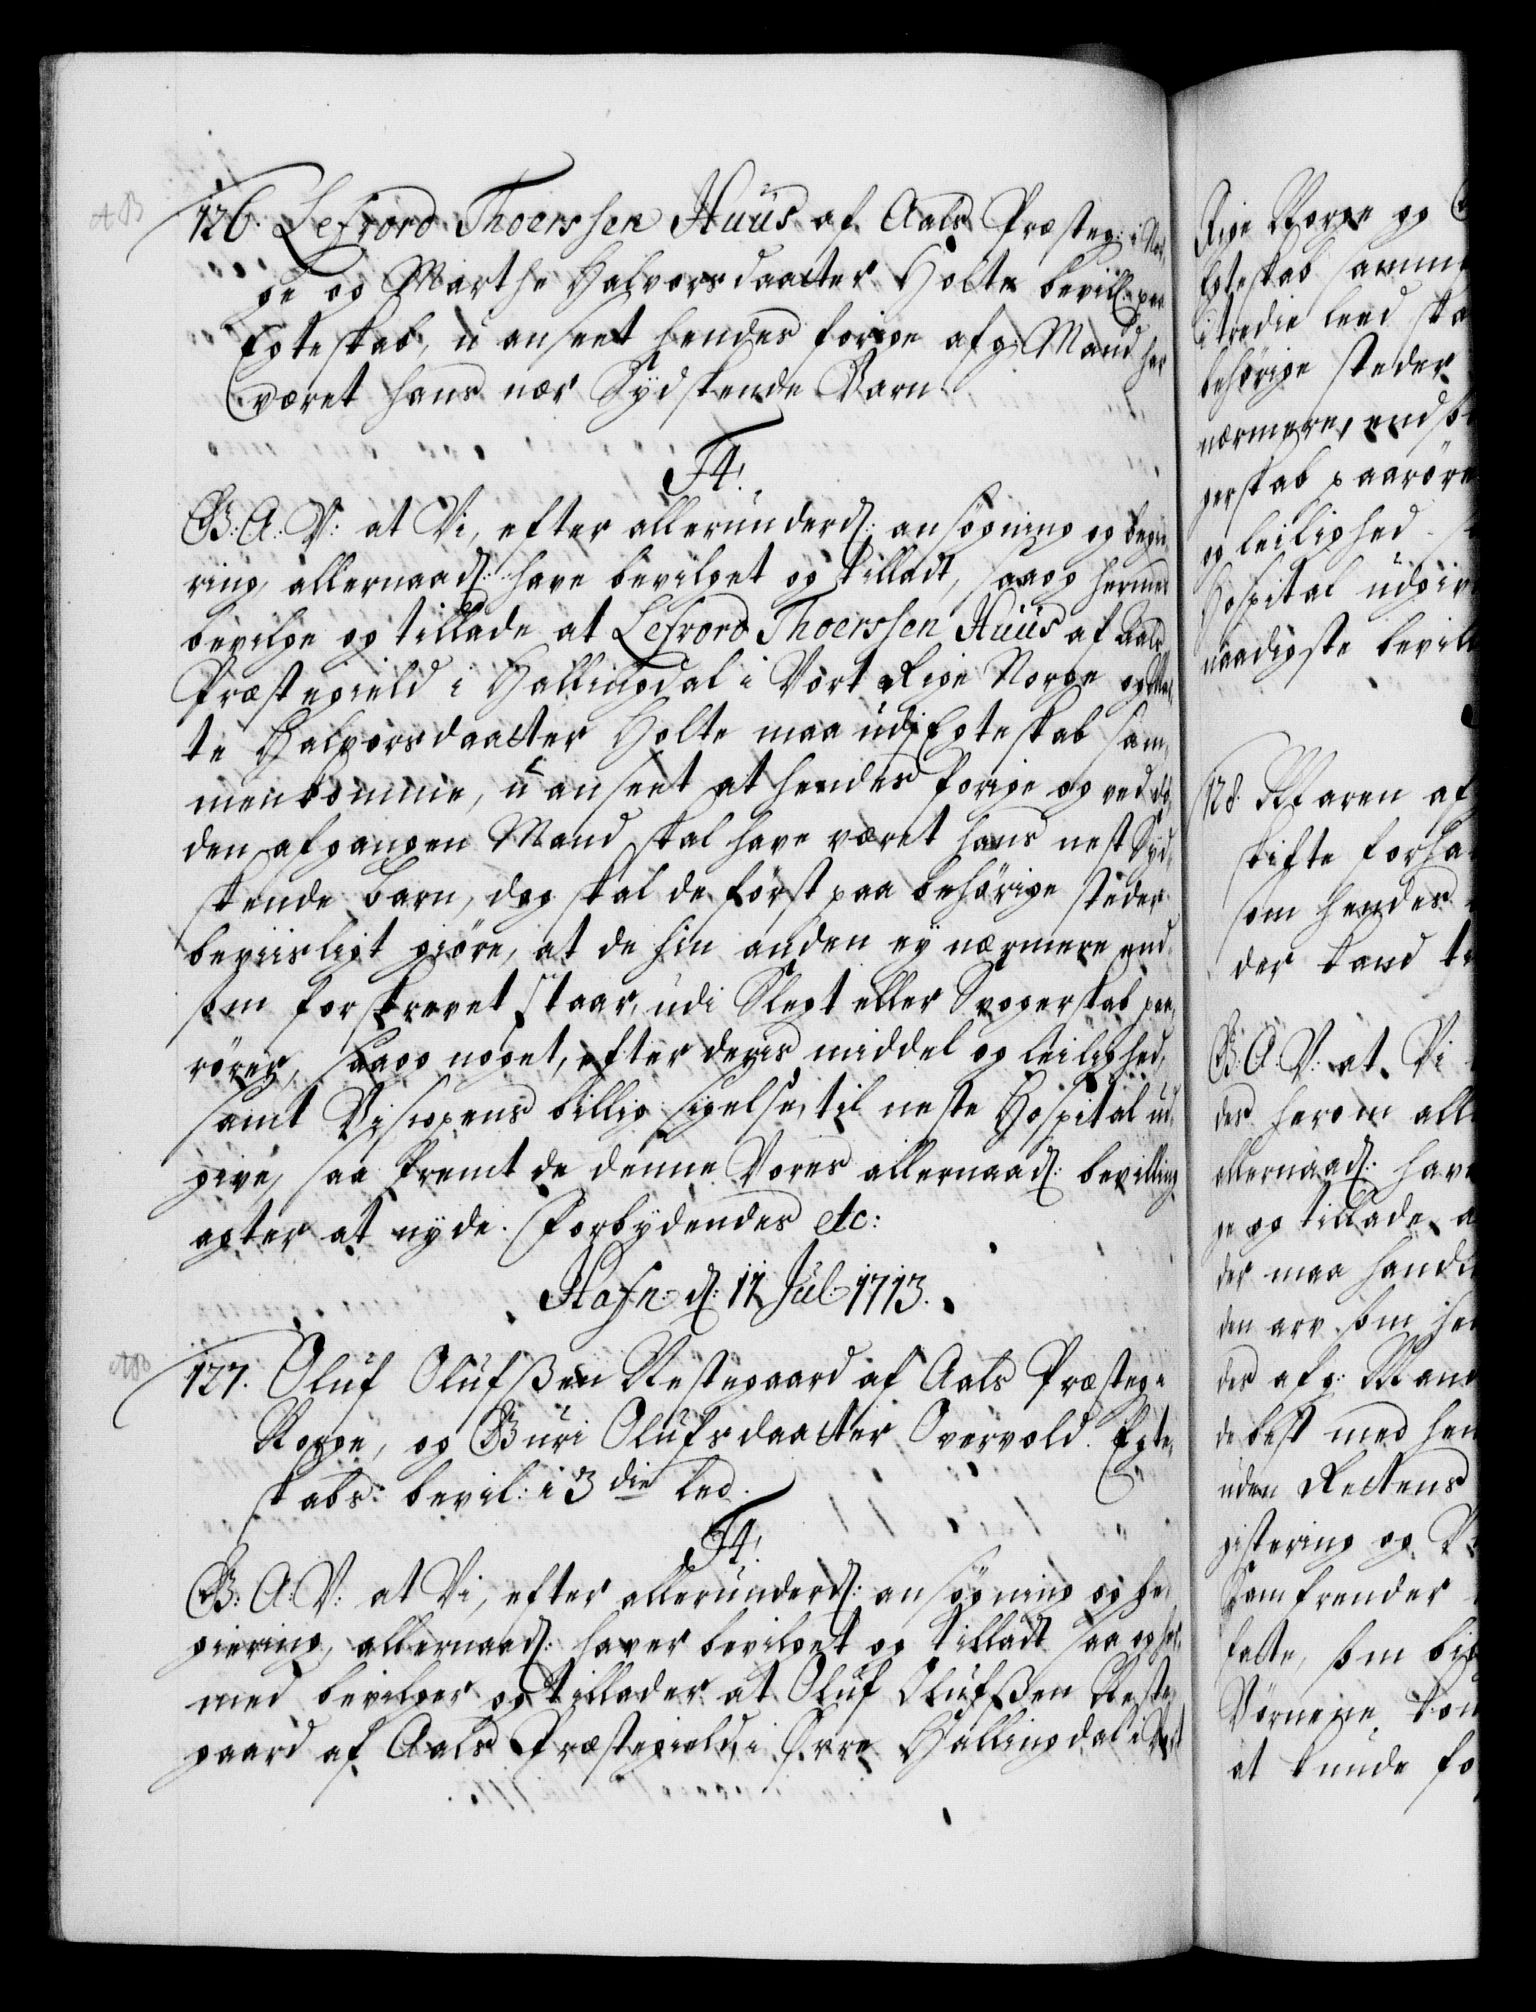 AB
126. Lefrord Thoerssen Huus af Aals Præsteg: i Nor-
ge og Marthe Halvorsdaatter Holte bevill: paa
Egteskab, uanseet hendes forige afg: Mand har
været hans nær Sydskende Barn.
F4.
G: A: V: at Vi, efter allerunderd: ansøgning og begie-
ring, allernaad: have bevilget og tilladt, saa og hermed
bevilge og tillade at Lefrord Thoerssen Huus af Aals
Præstegield i Hallingdal i Vort Rige Norge og Mar-
te Halvorsdaatter Holte maa udj Egteskab sam-
menkomme, uanseet at hendes forige og ved dø-
den afgangen Mand skal have været hans nest Syd-
skende barn, dog skal de først paa behørige steder
beviisligt giøre, at de hin anden ey nærmere end
som forskrevet staar, udi Slegt eller Svogerskab paa-
rører, saa og noget, efter deris middel og leilighed,
samt Biscopens billig sigelse, til neste Hospital ud-
give, saa fremt de denne Vores allernaad: bevilling
agter at nyde. Forbydendes etc:
Hafn: d: 17 Jul: 1713.
AB
127. Oluf Olufssen Restegaard af Aals Præsteg: i
Norge, og Guri Olufsdaatter Opervold. Egte-
skabs: bevil: i 3die led.
F4.
G: A: V: at Vi, efter allerunderd: ansøgning og be-
giering, allernaad: haver bevilget og tilladt saa og her-
med bevilger og tillader at Oluf Olufssen Reste-
gaard af Aals Præstegield, i Øvre Hallingdal i Vort
Rige Norge og
Egteskab samme
i tredie leed ska
behørige steder
nærmere, end so
gerskab paarøre
og leilighed
Hospital udgiv
naadigste bevil
128. Maren af
skifte forha
som hendes
der kand
G: A: V: at Vi
des herom all
allernaad: hav
ge og tillade a
der maa handl
den arv som he
des afg: Man
de best med hen
uden Rettens
gistering og V
Samfrender
falte, som bi
Vørnene kon
at kunde fo